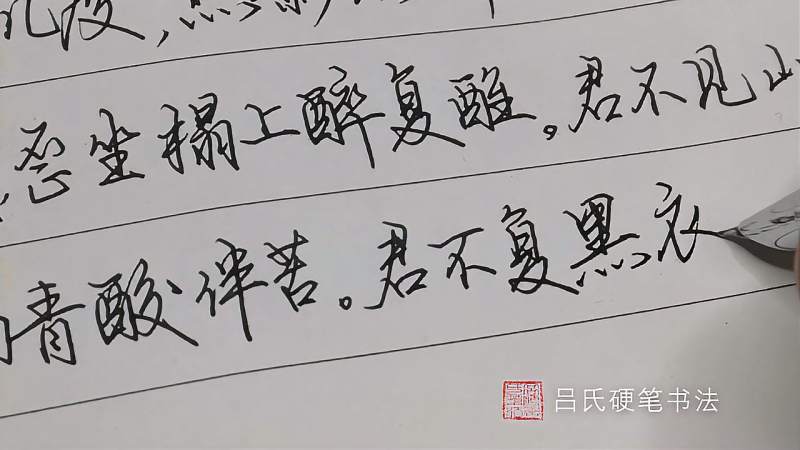 坐榻上醉复醒。君不见山
青酸伴苦。君不复黑衣
吕氏硬笔书法